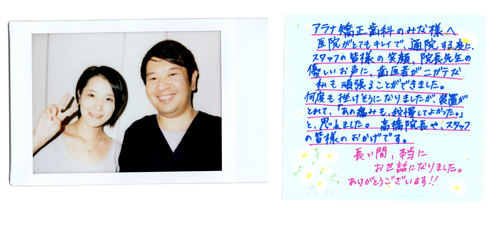 アラナ矯正歯科のみな様へ
医院がとてもキレイで、通院する度に、
スタッフの皆様の笑顔、院長先生の
優しいお声に、歯医者がニガテな
私も頑張ることができました。
何度も挫けそうになりましたが、装置が
とれて、「あの痛みも、我慢してよかった。」
と、思えました。高橋院長や、スタッフ
の皆様のおかげです。
長い間、本当に
お世話になりました。
ありがとうございます!!